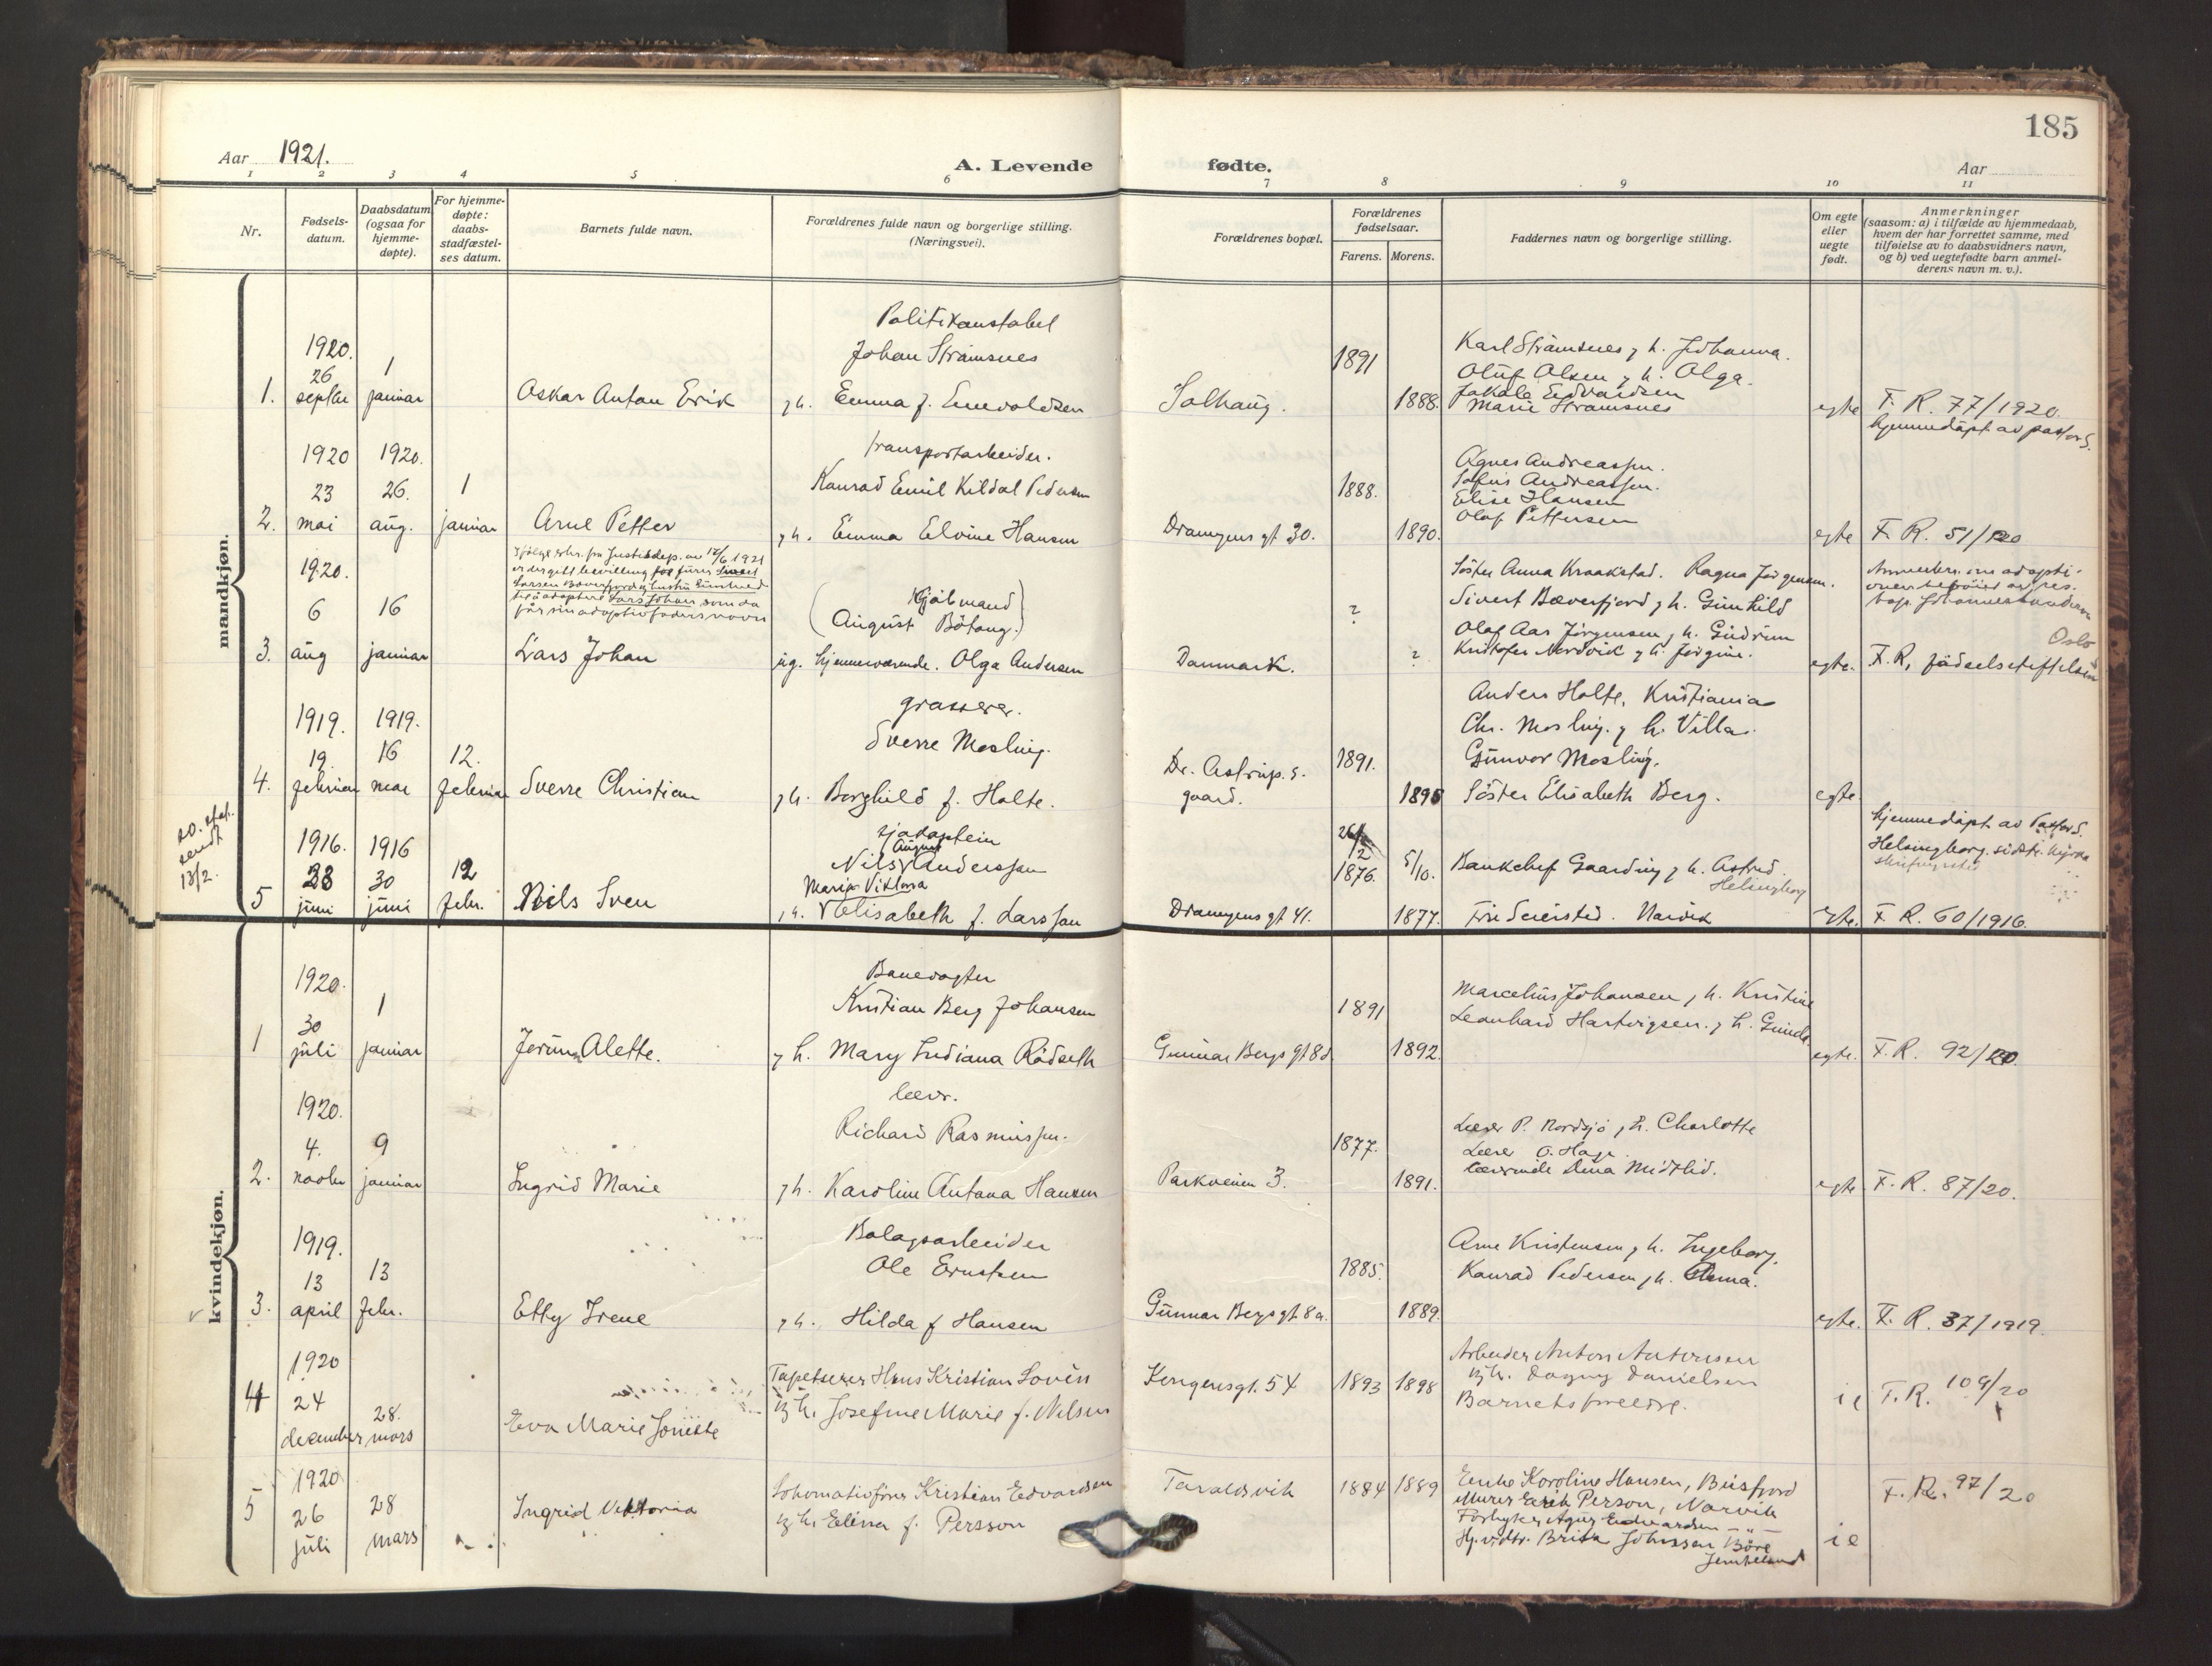 185
Aar 1921.
A. Levende fødte.
Aar
1 2 3 4 5 6 7 8 9 10 11
Nr.
Fødsels-
datum.
Daabsdatum
(ogsaa for
hjemme-
døpte).
For hjemme-
døpte:
daabs-
stadfæstel-
ses datum.
Barnets fulde navn.
Forældrenes fulde navn og borgerlige stilling.
(Næringsvei).
Forældrenes bopæl.
Forældrenes
fødselsaar.
Farens. Morens.
Faddernes navn og borgerlige stilling.
Om egte
eller
uegte
født.
Anmerkninger
(saasom: a) i tilfælde av hjemmedaab,
hvem der har forrettet samme, med
tilføielse av to daabsvidners navn,
og b) ved uegtefødte barn anmel-
derens navn m. v.).
mandkjøn.
Politikonstabel
1920. Johan Strømsnes 1891 Karl Strømsnes g h. Johanna.
26 1 Oluf Olsen g h. Olga.
1. septbr januar Oskar Anton Erik g h. Emma f. Enevoldsen Solhaug. 1888. Marie Strømsnes egte F. R. 77/1920.
hjemmedøpt av pastor S.
1920 1920. transportarbeider. Agnes Andreassen.
23 26. 1 Konrad Emil Kildal Pedersen 1888. Andreassen.
Elise Hansen
2. mai aug. januar Arne Petter g h. Emma Elvine Hansen Dronningens gt 30. 1890. Olaf Pettersen egte F. R. 51/20
Ifølge skr. fra Justisdep. av 17/6 1921
1920. Søster Anna Kraakstad. Ragna Jørgensen.
6 16 August ? Sivert Bæverfjord g h. Gunhild
Olaf Aas Jørgensen g h. Gudrun Oslo
3. aug januar Lars Johan ug. hjemmeværende. Olga Andersen Danmark. ? Kristofer Nordvik g h. Jørgine. egte. F. R. fødselsstiftelsen
grosserer. Anders Holte, Kristiania
1919. 1919. Sverre Mosling. Chr. Mosling. g h. Villa.
19. 16 12. Dr. Astrups. 1891. Gunvor Mosling.
4. februar mai februar Sverre Christian g h. Borghild f. Holte. gaard. 1895 Søster Elisabeth Berg. egte
sendt
13/2.
1916. 1916 hjemmedøpt av Pastor S.
August Helsingborg.
23 30 12 Nils Anderssson 1876. 5/10. Bankchef Gaarding g h. Astrid.
Maria Viktoria Helsingborg
5 juni juni febr. Nils Sven g h. Elisabeth f. Larsson Dronningens gt 41. 1877. Narvik egte. F. R. 60/1916.
kvindekjøn.
Banevogter
1920. Kristian Berg Johansen 1891 Marcelius Johansen g h. Kristine
30 1 Leonhard Hartvigsen. g h.
1 juli januar Jorunn Alette. g h. Mary Indiana Rødseth Gunnar Bergs gt 8d 1892. egte. F. R. 92/20.
lærer.
1920. Richard Rasmussen. Lærer P. Nordsjø g h. Charlotte
4. 9 1877. Lærer O. Hage.
2. novbr januar Ingrid Marie g h. Karoline Antona Hansen Parkveien 3. 1891. Lærerinde Dina Midtlid. egte F. R. 87/20.
Bolagsarbeider
1919. Ole Ernstsen Arne Kristensen g h. Ingeborg.
13 13 1885. Konrad Pedersen g h. Anna.
3. april febr. Etty Irene g h. Hilda f Hansen Gunnar Bergs gt. 8a. 1889. egte. F. R. 37/1919.
1920 Tapetserer Hans Kristian Lovèn Kongensgt. 54 1893 1898 Arbeider Anton Antonsen
4 24 28. g h. Josefine Marie f. Nilsen g h. Dagny Danielsen ie F. R. 109/20
december mars Eva Marie Barnets foreldre.
1920 Lokomotivfører Kristian Edvardsen Taraldsvik 1884 1889 Enke Karoline Hansen, Beisfjord
5 26 28 Ingrid Viktoria g h. Elina f. Persson Murer Erik Person, Narvik F. R. 97/20
juli mars Agny Edvardsen — " —
Brita Johnssen ie